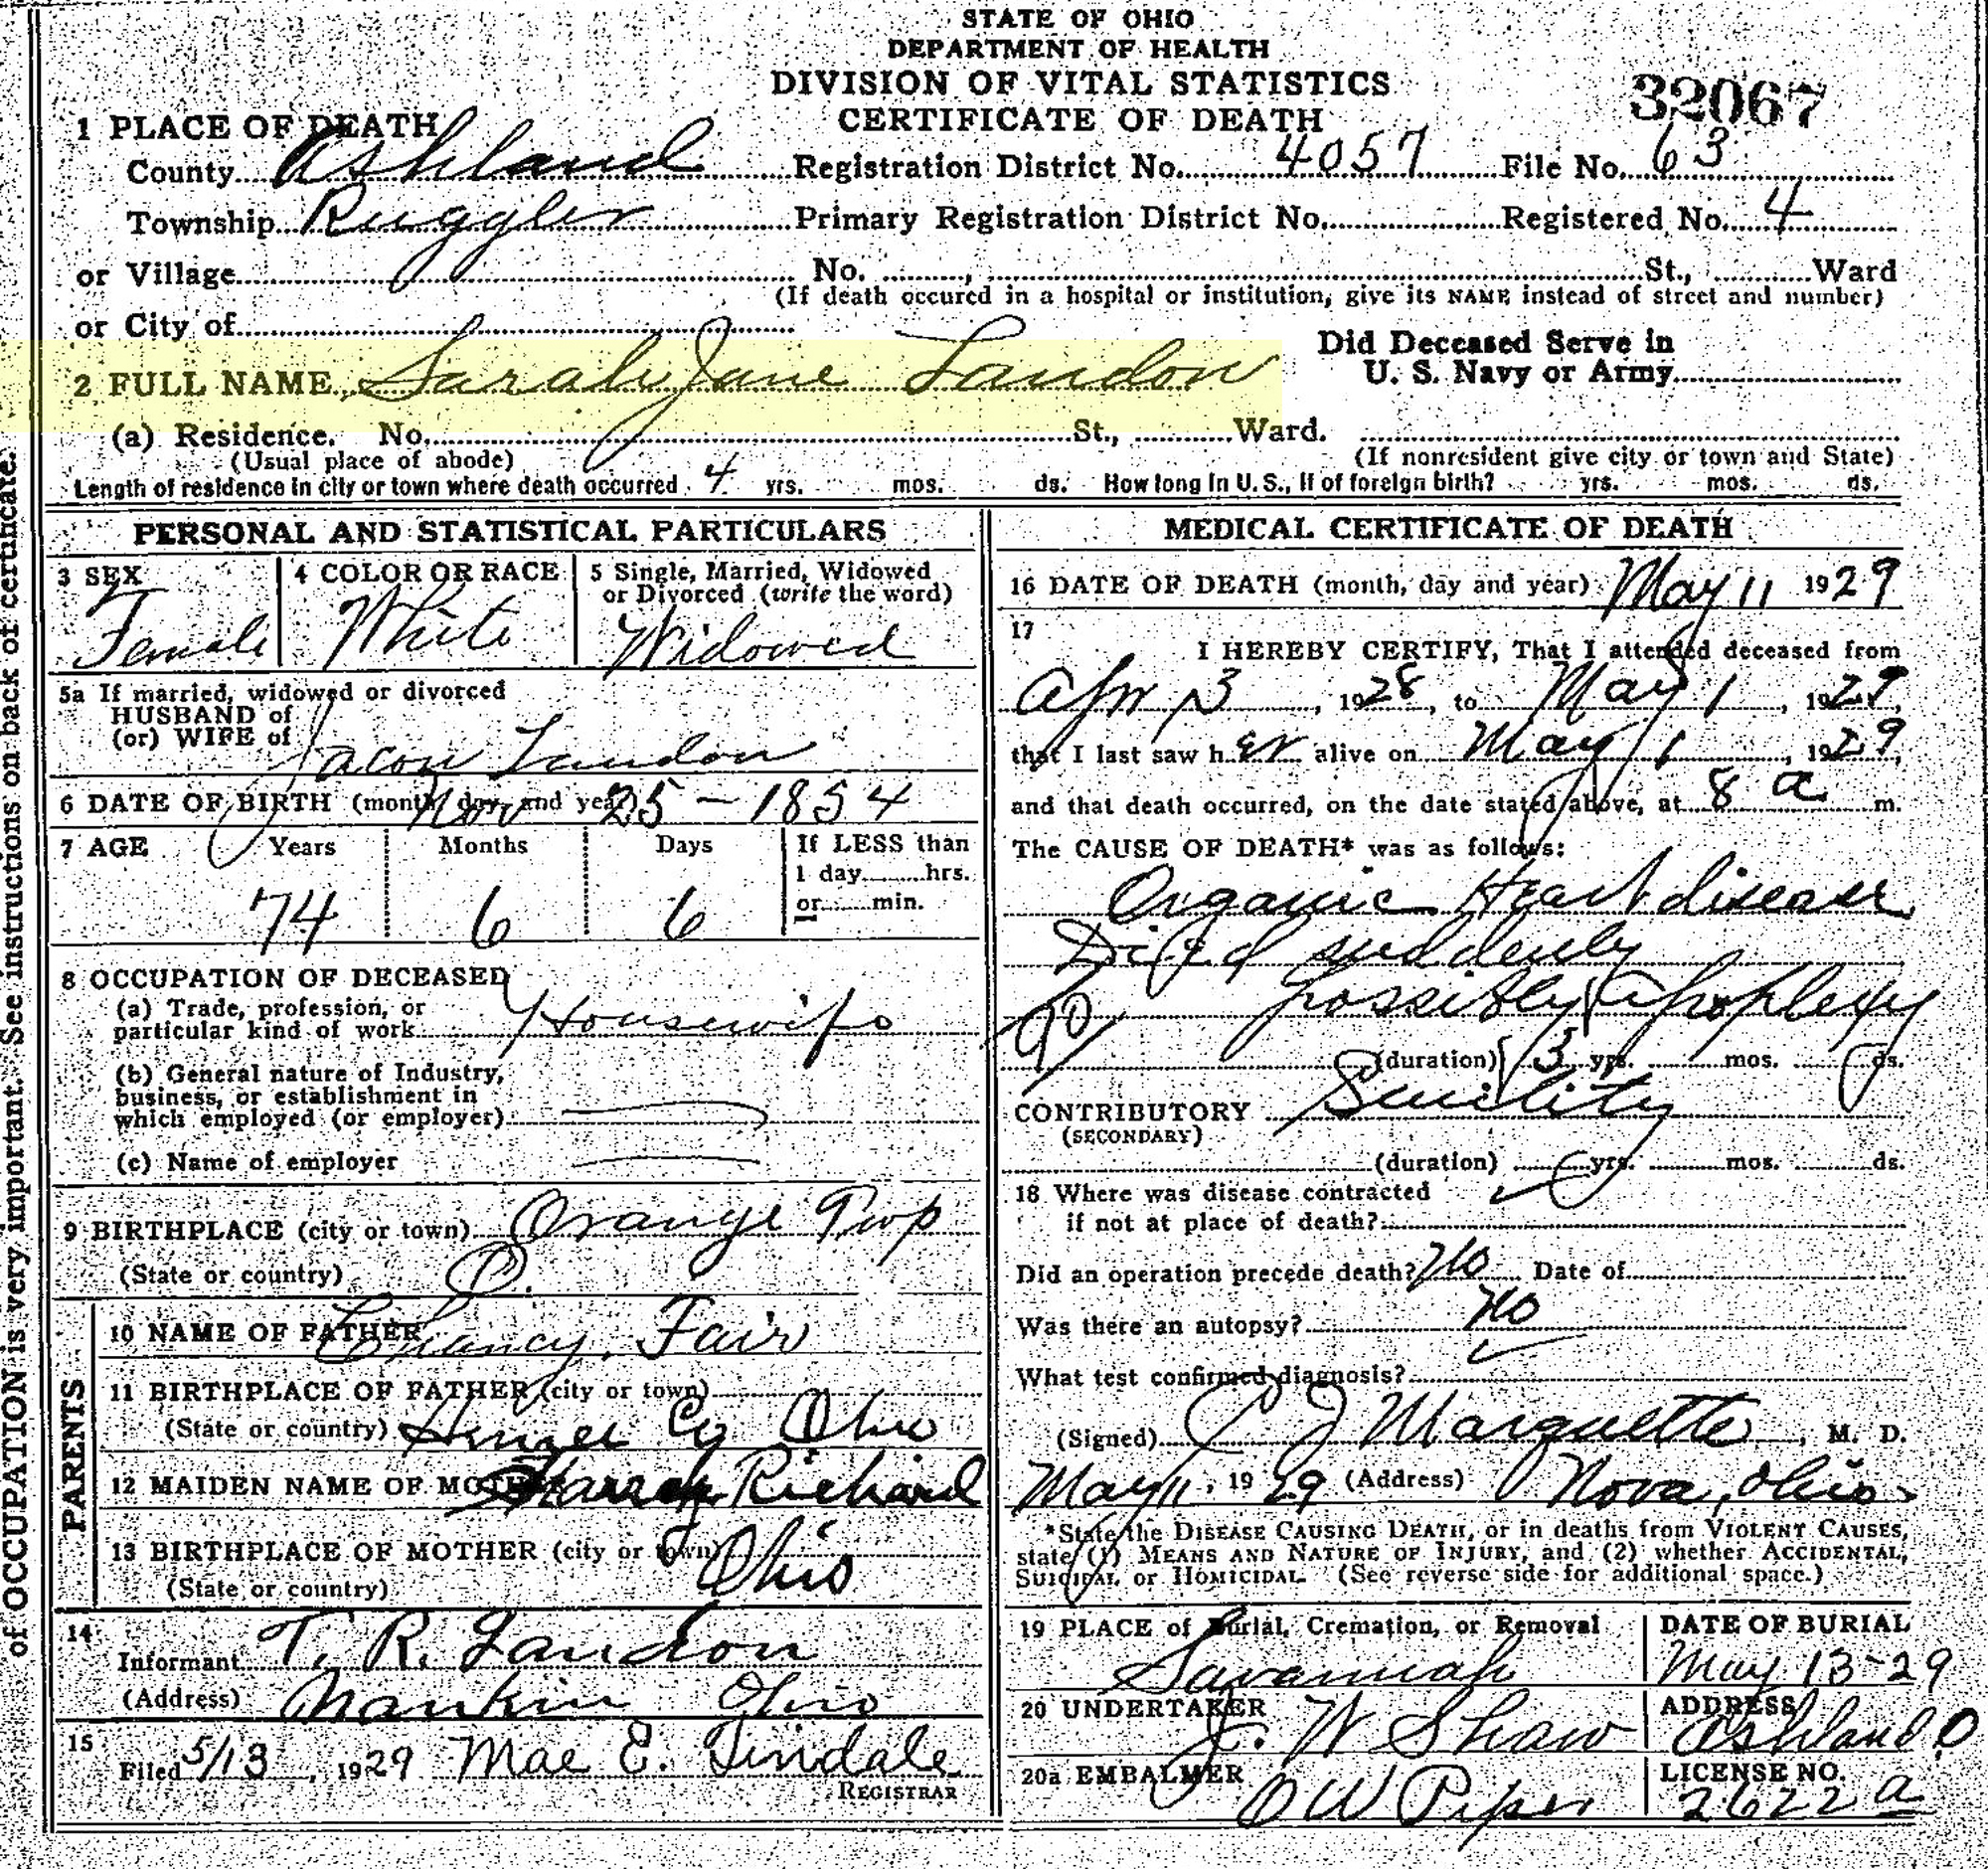 STATE OF OHIO
DEPARTMENT OF HEALTH
DIVISION OF VITAL STATISTICS
CERTIFICATE OF DEATH
32067
1 PLACE OF DEATH
County Ashland Registration District No. 4057 File No. 63
Township Ruggles Primary Registration District No. Registered No. 4
or Village No. , St., Ward
(If death occured in a hospital or institution, give its NAME instead of street and number)
or City of
Did Deceased Serve in
U. S. Navy or Army
2 FULL NAME Sarah Jane Landon
(a) Residence. No. St., Ward.
(Usual place of abode) (If nonresident give city or town and State)
Length of residence in city or town where death occurred 4 yrs. mos. ds. How long in U. S., if of foreign birth? yrs. mos. ds.
of OCCUPATION is very important. See instructions on back of certificate.
PERSONAL AND STATISTICAL PARTICULARS
3 SEX
Female
4 COLOR OR RACE
White
5 Single, Married, Widowed
or Divorced (write the word)
Widowed
5a If married, widowed or divorced
HUSBAND of
(or) WIFE of
Landon
6 DATE OF BIRTH (month, day, and year) Nov 25 - 1854
7 AGE Years Months Days
74 6 6
If LESS than
1 day hrs.
or min.
8 OCCUPATION OF DECEASED
(a) Trade, profession, or
particular kind of work Housewife
(b) General nature of Industry,
business, or establishment in
which employed (or employer)
(c) Name of employer
9 BIRTHPLACE (city or town) Orange Twp
(State or country) O.
PARENTS
10 NAME OF FATHER Chancy Fair
11 BIRTHPLACE OF FATHER (city or town)
(State or country) Co Ohio
12 MAIDEN NAME OF MOTHER Richard
13 BIRTHPLACE OF MOTHER (city or town)
(State or country) Ohio
14
Informant T. R. Landon
(Address) Nankin Ohio
15
Filed 5/13, 1929 Mae E. Tindale
REGISTRAR
MEDICAL CERTIFICATE OF DEATH
16 DATE OF DEATH (month, day and year) May 11 1929
17
I HEREBY CERTIFY, That I attended deceased from
Apr 3, 1928, to May 1, 1929,
that I last saw her alive on May 1, 1929,
and that death occurred, on the date stated above, at 8 a m.
The CAUSE OF DEATH* was as follows:
Organic Heart disease
Died suddenly
90 possibly Apoplexy
(duration) 3 yrs. mos. ds.
CONTRIBUTORY Senility
(SECONDARY)
(duration) yrs. mos. ds.
18 Where was disease contracted
if not at place of death?
Did an operation precede death? No Date of
Was there an autopsy? No
What test confirmed diagnosis?
(Signed) C J Marquette, M. D.
May 11, 1929 (Address) Nova, Ohio
*State the DISEASE CAUSING DEATH, or in deaths from VIOLENT CAUSES,
state (1) MEANS AND NATURE OF INJURY, and (2) whether ACCIDENTAL,
SUICIDAL or HOMICIDAL. (See reverse side for additional space.)
19 PLACE of Burial, Cremation, or Removal
Savannah
DATE OF BURIAL
May 13-29
20 UNDERTAKER
J. W Shaw
ADDRESS
Ashland O
20a EMBALMER
O W Piper
LICENSE NO.
2622 a